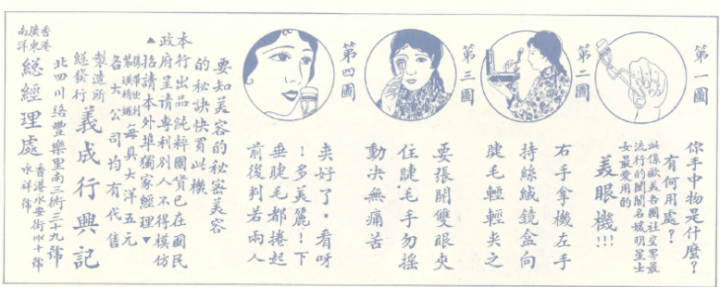 第一圖
你手中物是什麼?
有何用處?
此係歐美各國社交界最
流行的閨閣名媛明星士
女最愛用的
美眼機!!!
第二圖
右手拿機左手
持絲絨鏡盒向
睫毛輕輕夾之
第三圖
要張開雙眼夾
住睫毛手勿搖
動決無痛苦
第四圖
夾好了。看呀
!多美麗!下
垂睫毛都捲起
前後判若兩人
要知美容的秘密美容
的秘訣快買此機
本行出品純粹國貨已在國民
政府呈請專利別人不得模仿
▲招請本外埠獨家經理▼
每具大洋五元
各大公司均有代售
製造所
總發行
義成行興記
北四川路豐樂里南三衖三十九號
香港
廣東
南洋
總經理處
香港永安街四十號
永祥號